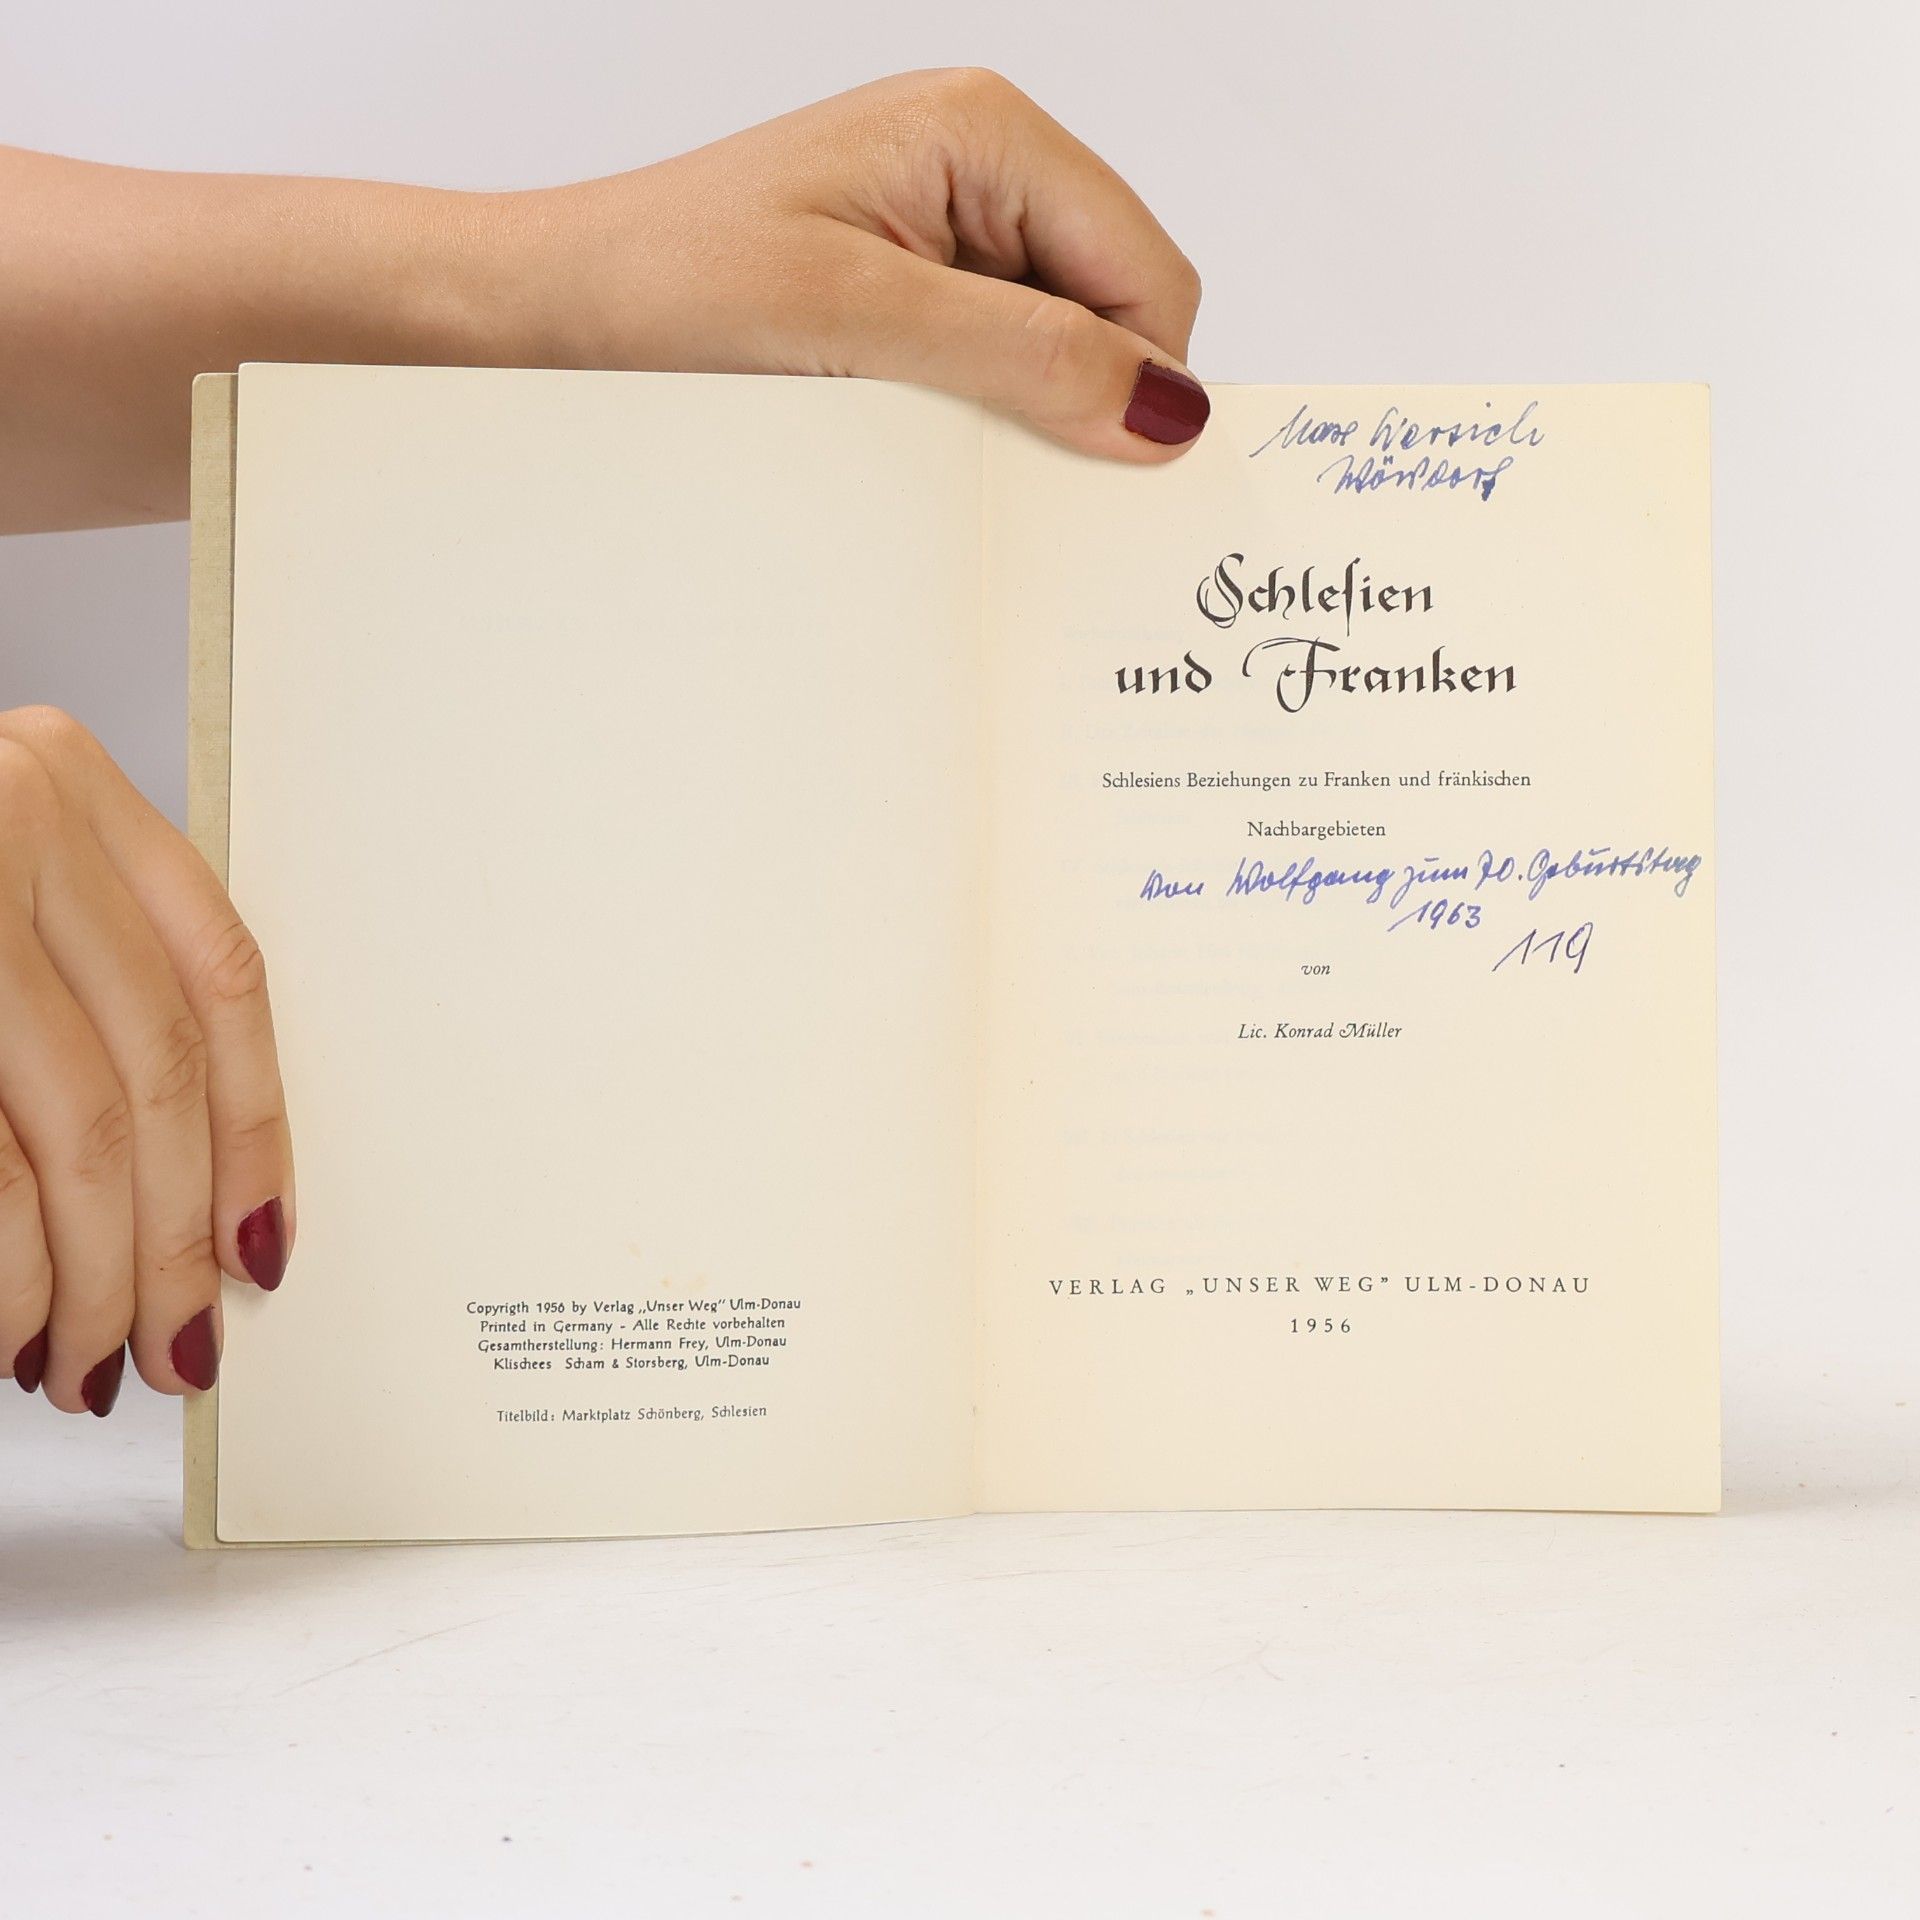 Copyrigth 1956 by Verlag „Unser Weg“ Ulm-Donau
Printed in Germany - Alle Rechte vorbehalten
Gesamtherstellung: Hermann Frey, Ulm-Donau
Klischees Scham & Storsberg, Ulm-Donau
Titelbild: Marktplatz Schönberg, Schlesien
Max
Schleſien
und Franken
Schlesiens Beziehungen zu Franken und fränkischen
Nachbargebieten
von Wolfgang zum 70. Geburtstag
1963
119
von
Lic. Konrad Müller
VERLAG „UNSER WEG” ULM-DONAU
1956